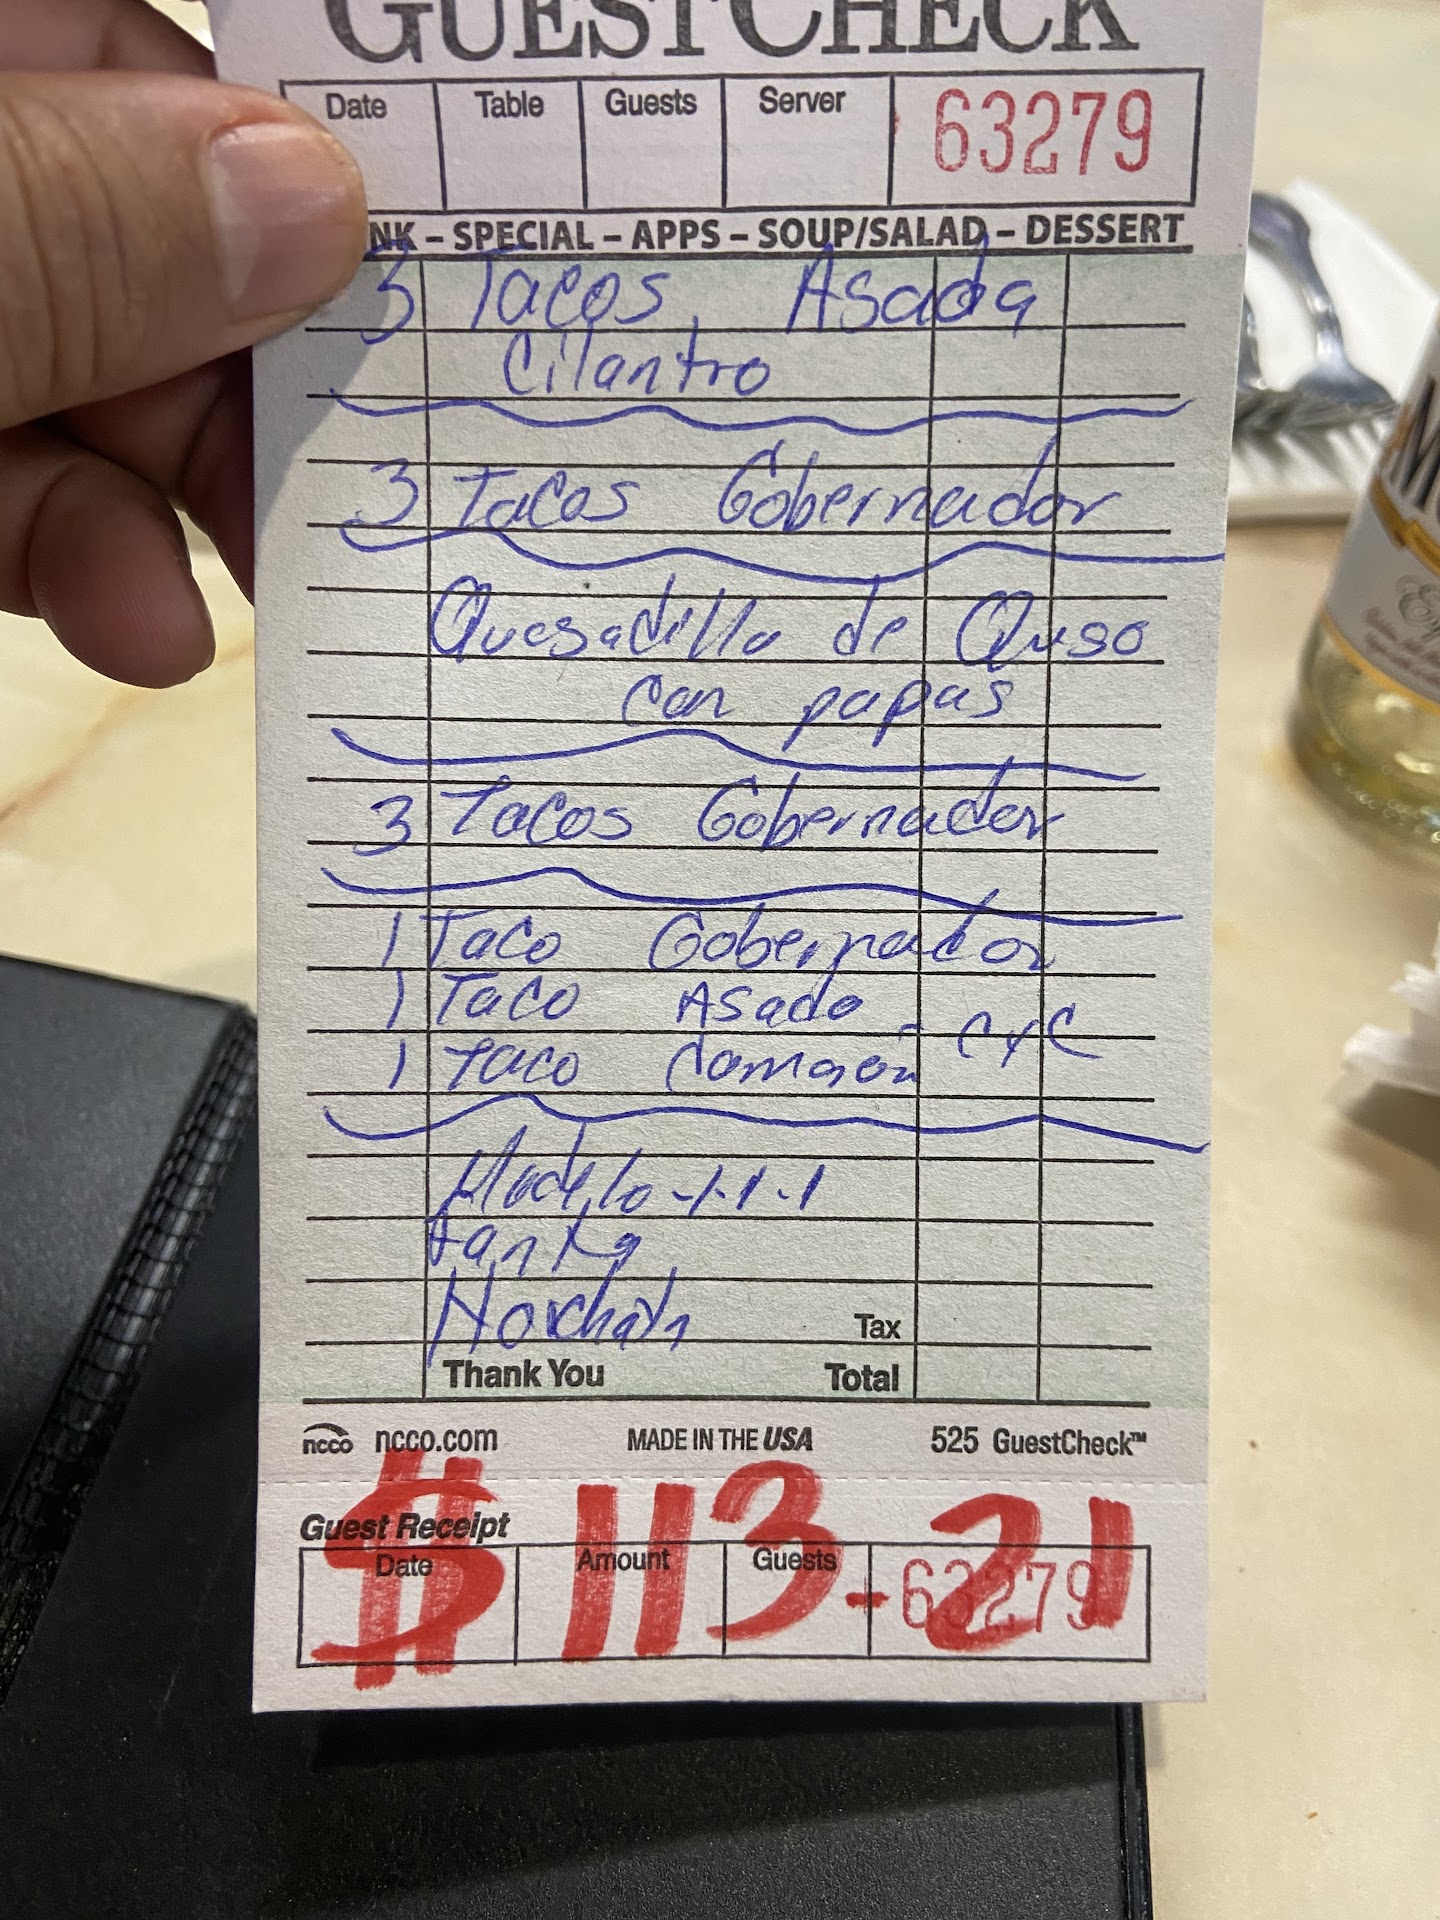 GUESTCHECK
Date Table Guests Server 63279
NK – SPECIAL – APPS – SOUP/SALAD – DESSERT
3 Tacos Asada
Cilantro
3 Tacos Gobernador
Quesadilla de Quso
con papas
3 Tacos Gobernador
1 Taco Gobernador
1 Taco Asada
1 Taco Camaron - CyC
Modelo -1-1-1
Horchata
Tax
Thank You Total
ncco ncco.com MADE IN THE USA 525 GuestCheck™
$113-21
Guest Receipt
Date Amount Guests 63279